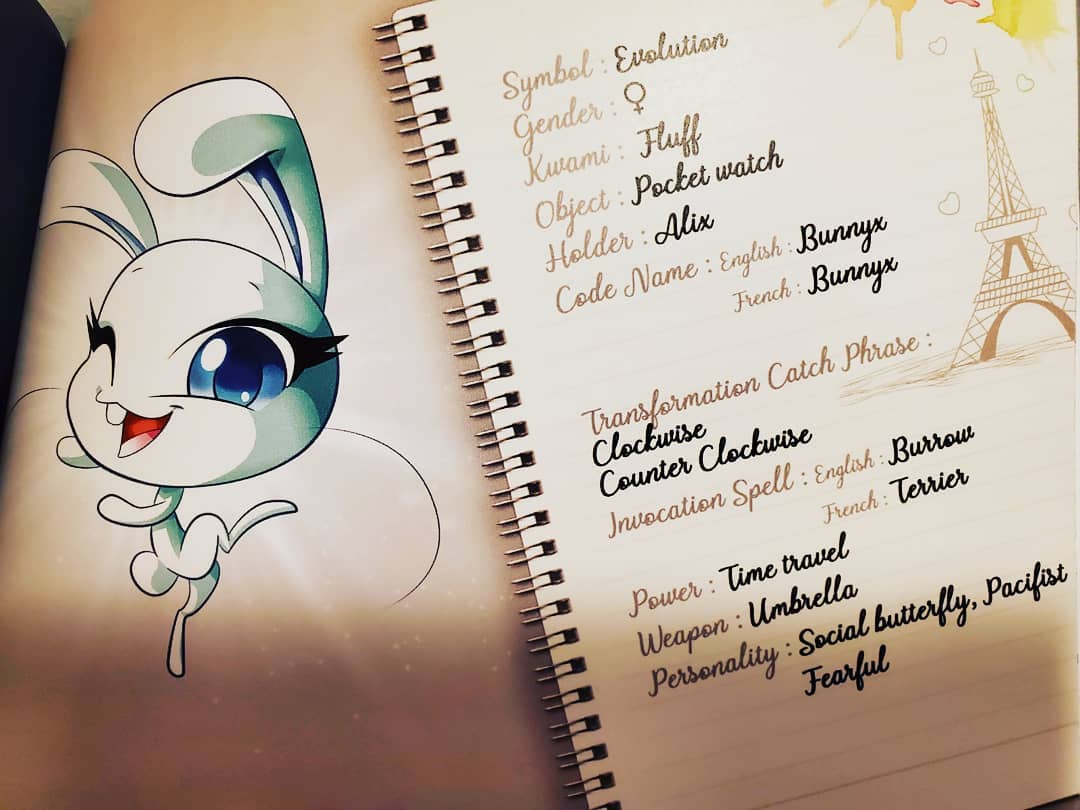 Symbol : Evolution
Gender : ♀
Kwami : Fluff
Object : Pocket watch
Holder : Alix
Code Name : English : Bunnyx
French : Bunnyx
Transformation Catch Phrase :
Clockwise
Counter Clockwise
Invocation Spell : English : Burrow
French : Terrier
Power : Time travel
Weapon : Umbrella
Personality : Social butterfly, Pacifist
Fearful